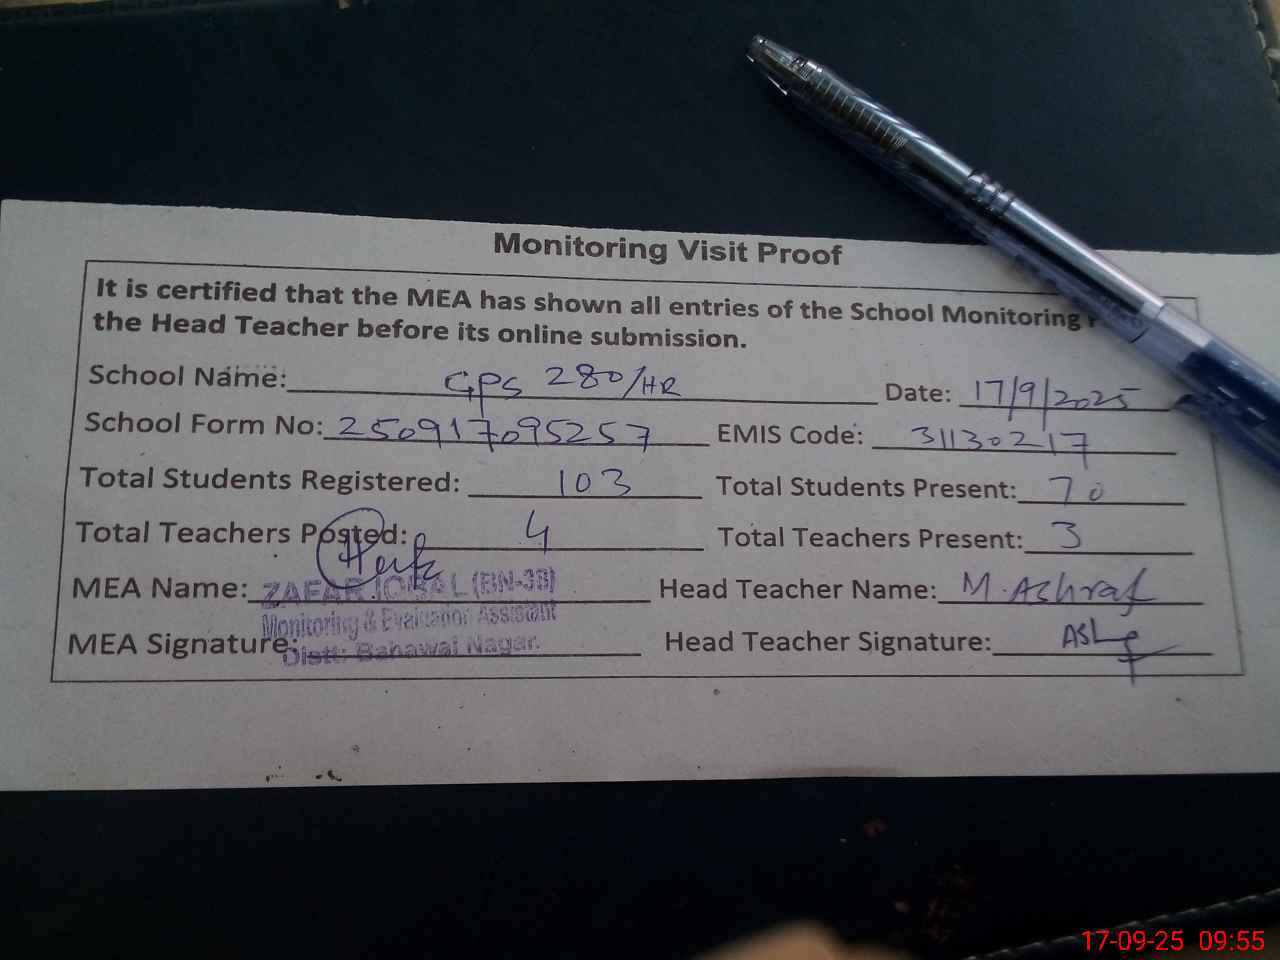 Monitoring Visit Proof
It is certified that the MEA has shown all entries of the School Monitoring
the Head Teacher before its online submission.
School Name: GPS 280/HR Date: 17/9/2025
School Form No: 250917095257 EMIS Code: 31130217
Total Students Registered: 103 Total Students Present: 70
Total Teachers Posted: 4 Total Teachers Present: 3
MEA Name: ZAFAR IQBAL (BN-38) Head Teacher Name: M. Ashraf
Monitoring & Evaluation Assistant
MEA Signature: Distt: Bahawal Nagar. Head Teacher Signature:
17-09-25 09:55